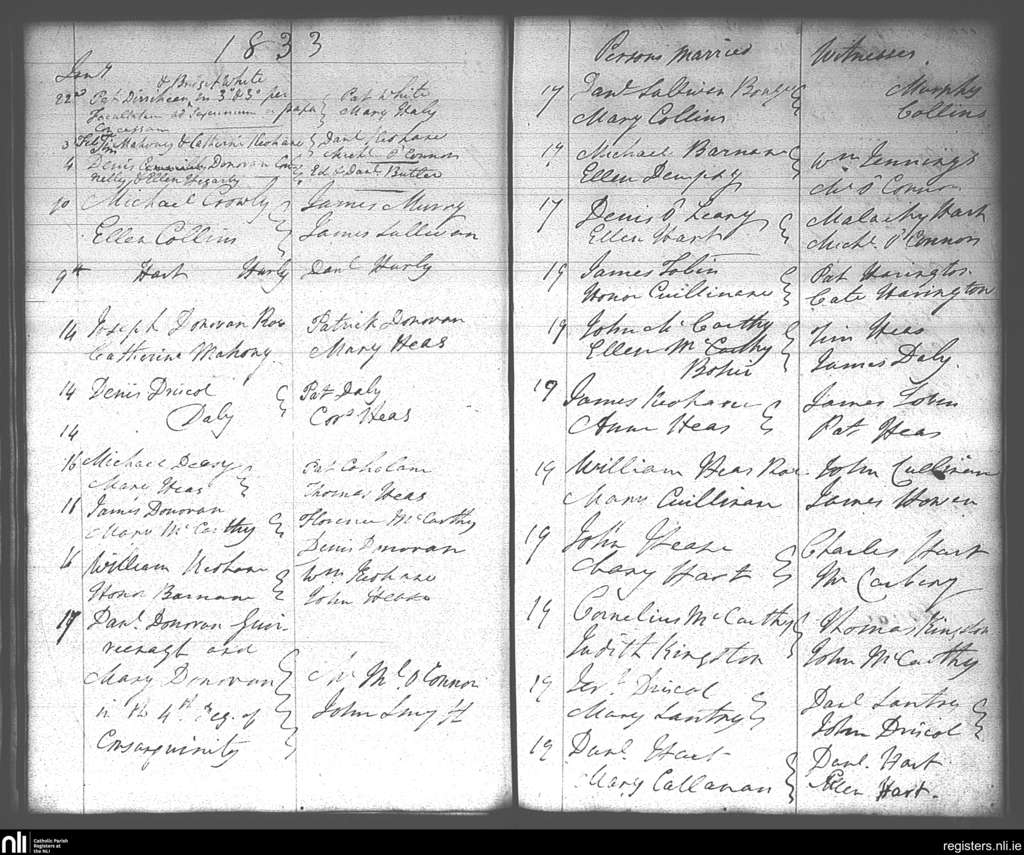 1833
Jany
& Briget White
22nd Pat Dinihean in 3° & 3° per Pat White
facultatem ad Septennium a papa Mary Haly
Concessam
3 Feby Tim Mahony & Catherine Keohane Danl Keohane
Michl O'Connor
4 Denis Donovan
Nelly & Ellen Hegarty Ed & Danl Butler
10 Michael Crowly James Murry
Ellen Collins James Sullivan
9th Hart Hurly Danl Hurly
14 Joseph Donovan Roe Patrick Donovan
Catherine Mahony Mary Heas
14 Denis Driscol Pat Daly
Daly Cors Heas
14
16 Michael Deasy Pat Coholane
Mary Heas Thomas Heas
16 James Donovan Florence McCarthy
Mary McCarthy Denis Donovan
16 William Keohane Wm Keohane
Honor Barnane John Hease
17 Danl Donovan
and
Mary Donovan Ml O'Connor
in the 4th Deg. of John Smyth
Consanguinity
Persons married Witnesses
17 Danl Sullivan Murphy
Mary Collins Collins
17 Michael Barnane Wm Jennings
Ellen Dempsy Mr O'Connor
17 Denis O'Leary Malachy Hart
Ellen Hart Michl O'Connor
19 James Tobin Pat Harington
Honor Cuillinane Cate Harington
19 John McCarthy Tim Heas
Ellen McCarthy James Daly.
19 James Keohane James Tobin
Anne Heas Pat Heas
19 William Heas Roe John Cullinan
Mary Cuillinan James
19 John Hease Charles Hart
Mary Hart Mr Carbery
19 Cornelius McCarthy Thomas Kingston
Judith Kingston John McCarthy
19 Jerh Driscol Danl Lantry
Mary Lantry John Driscol
19 Danl Hart Danl. Hart
Mary Callanan Ellen Hart.
nli
Catholic Parish
Registers at
the NLI
registers.nli.ie